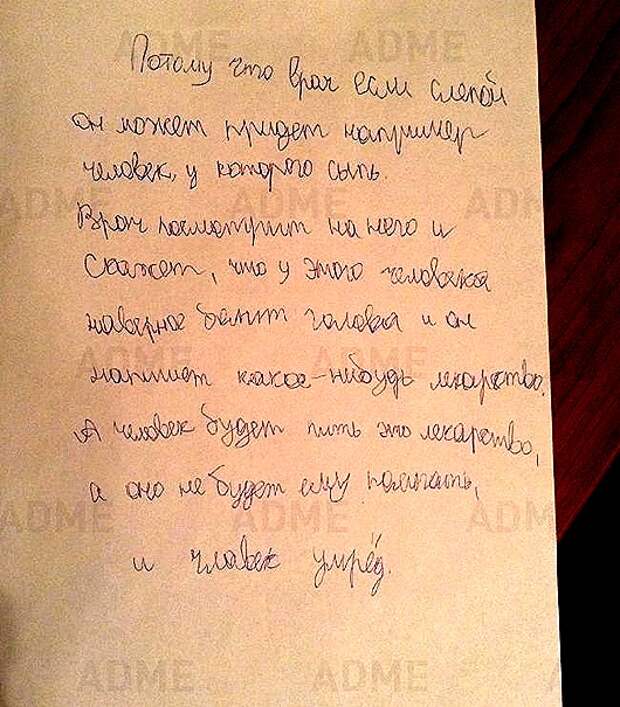 Потому что врач если слепой
он может придет например
человек, у которого сыпь.
Врач посмотрит на него и
скажет, что у этого человека
наверное балит голова и он
напишет какое-нибудь лекарство.
А человек будет пить это лекарство,
а оно не будет ему помагать,
и чловек умрёд.
ADME